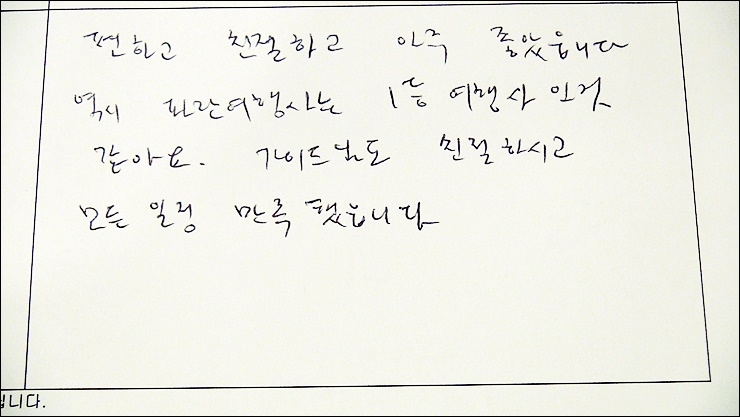 편하고 친절하고 아주 좋았읍니다
역시 파란여행사는 1등 여행사 인것
같아요. 가이드님도 친절하시고
모든 일정 만족 했읍니다
니다.